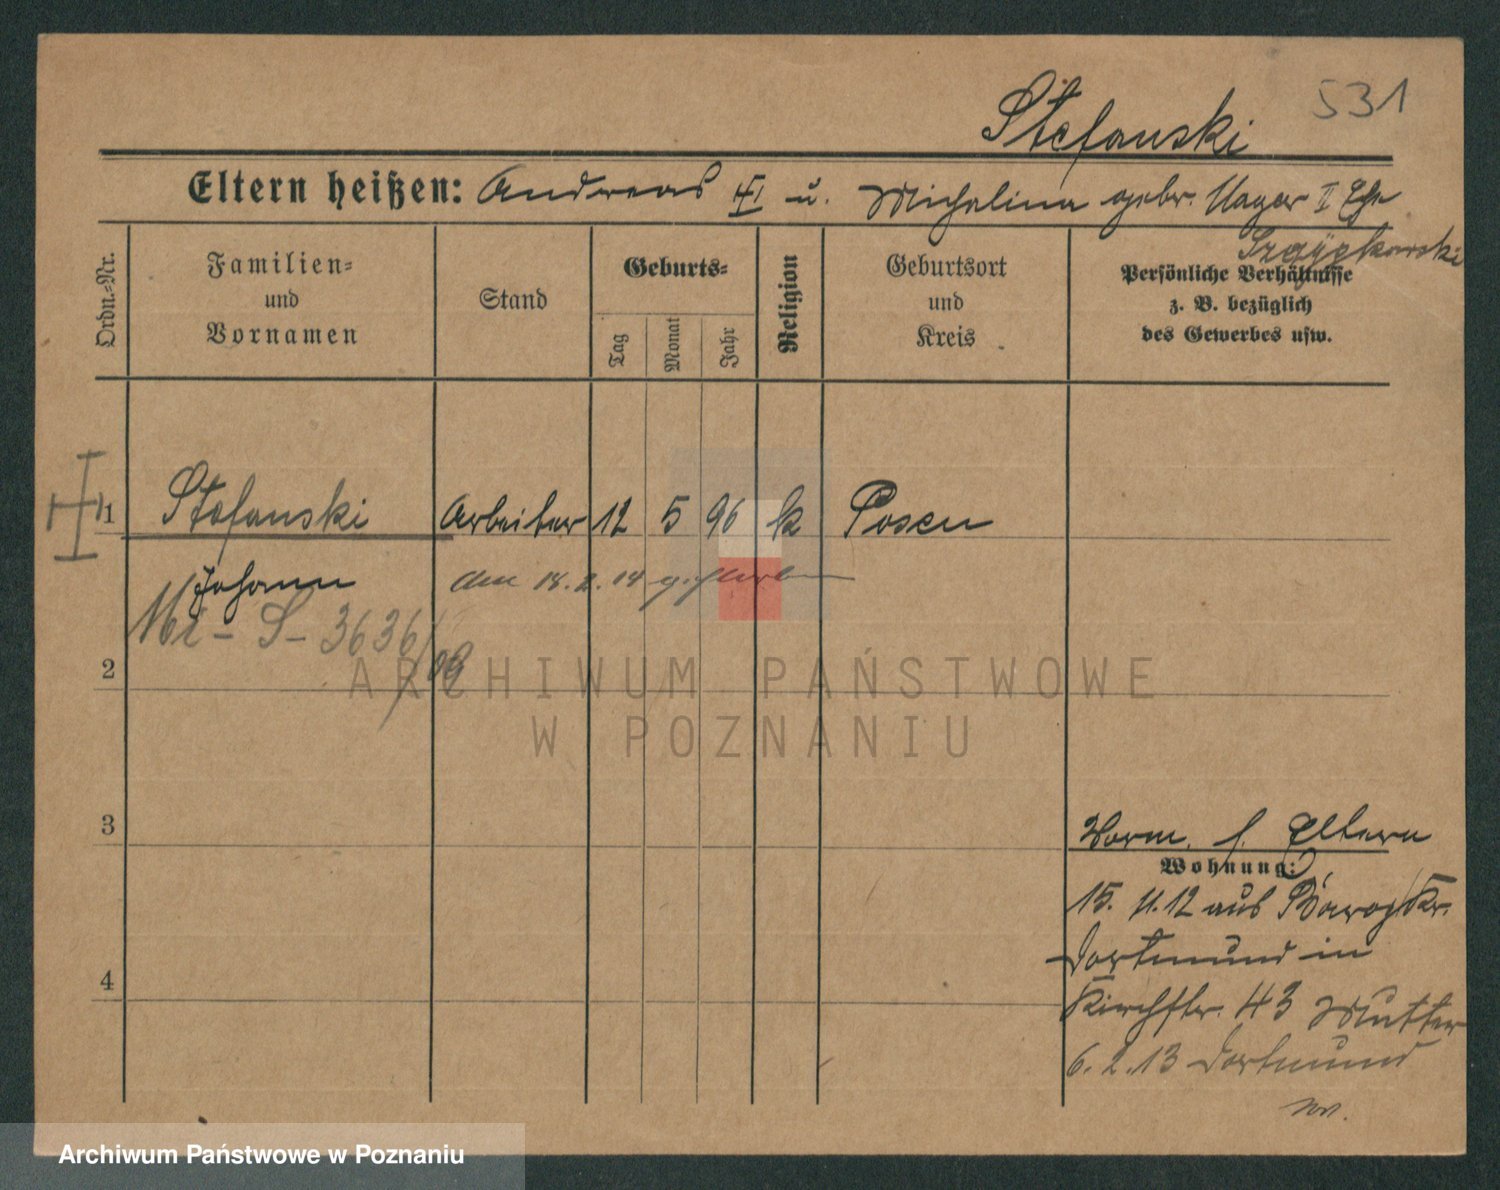 531
Stefanski
Eltern heißen: Andreas u. Michalina gebr. II Ehe
Ordn.-Nr.
Familien-
und
Vornamen
Stand
Geburts-
Tag
Monat
Jahr
Religion
Geburtsort
und
Kreis
Persönliche Verhältnisse
z. B. bezüglich
des Gewerbes usw.
1 Stefanski Arbeiter 12 5 96 k Posen
Johann den 18.2.14 gestorben
Mi-S-3636/09
2
3
4
Vorm. s. Eltern
Wohnung:
15. 11.12 aus Kr.
Dortmund in
Kirchstr. 43 Mutter
6.2.13 Dortmund
ARCHIWUM PAŃSTWOWE
W POZNANIU
Archiwum Państwowe w Poznaniu